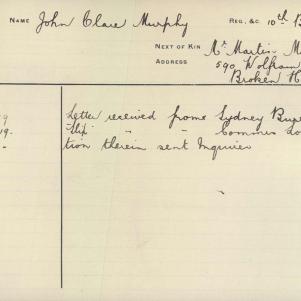 NAME John Clare Murphy REG. &C. 10th B
NEXT OF KIN Mr. Martin M
ADDRESS 590 Wolfram
Broken H
9 Letter received from Sydney Bure
19. Slip " Commns
- tion therein sent Inquirer